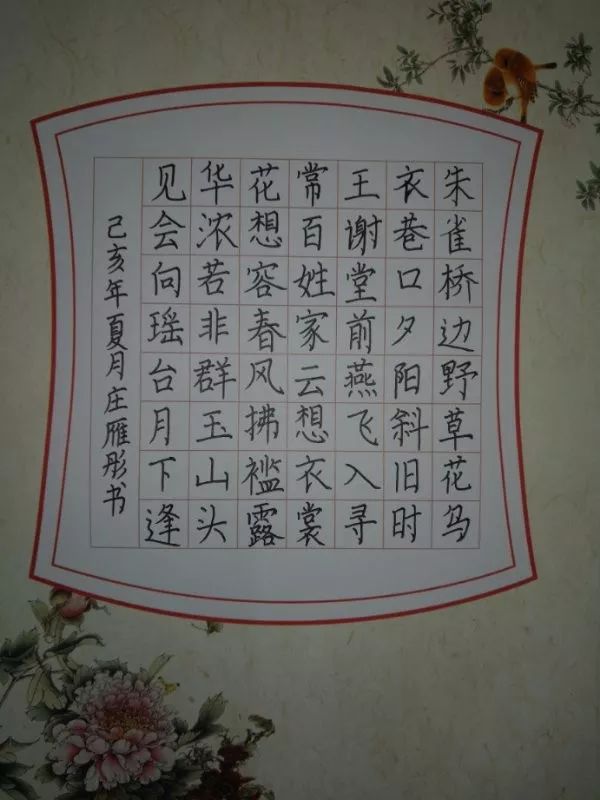 朱雀桥边野草花乌
衣巷口夕阳斜旧时
王谢堂前燕飞入寻
常百姓家云想衣裳
花想容春风拂褴露
华浓若非群玉山头
见会向瑶台月下逢
己亥年夏月庄雁彤书